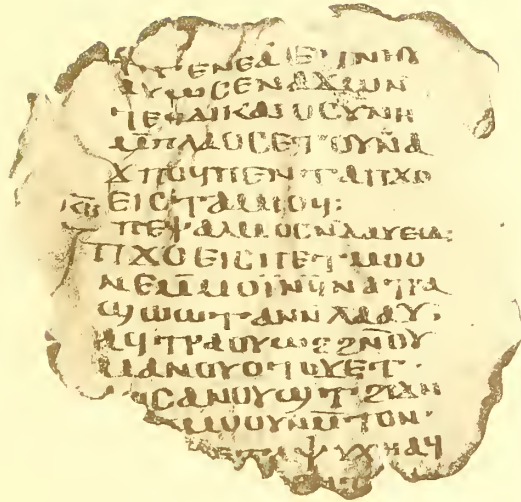 ⲧⲅⲉⲛⲉⲁ ⲉⲧⲛⲏⲩ
ⲁⲩⲱ ⲥⲉⲛⲁϫⲱ ⲛ
ⲧⲉϥⲇⲓⲕⲁⲓⲟⲥⲩⲛⲏ
ⲙ̅ⲡⲗⲁⲟⲥ ⲉⲧⲟⲩⲛⲁ
ϫⲡⲟϥ ⲡⲉⲛⲧⲁⲡϫⲟ
ⲕ̅ⲃ̅ ⲉⲓⲥ ⲧⲁⲙⲓⲟϥ:
ⲡⲉⲯⲁⲗⲙⲟⲥ ⲛⲇⲁⲩⲉⲓⲇ:
ⲡϫⲟⲉⲓⲥ ⲡⲉⲧⲙⲟⲟ
ⲛⲉ ⲙ̅ⲙⲟⲓ ⲛ̅ϥⲛⲁⲧⲣⲁ
ϣⲱⲱⲧ ⲁⲛ ⲛⲗⲁⲁⲩ·
ⲁϥⲧⲣⲁⲟⲩⲱϩ ϩⲛ̅ⲟⲩ
ⲙⲁ ⲛⲟⲩⲟⲧⲟⲩⲉⲧ·
ⲁϥⲥⲁⲛⲟⲩϣⲧ ϩⲓϫⲛ
ⲙⲟⲟⲩ ⲛⲙ̅ⲧⲟⲛ·
ⲧⲁⲯⲩⲭⲏ ⲁϥ